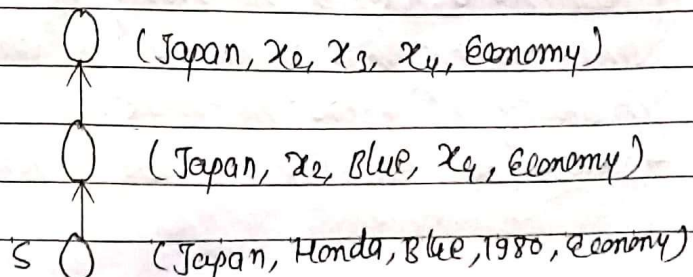 (Japan, x2, x3, x4, Economy)
(Japan, x2, Blue, x4, Economy)
S (Japan, Honda, Blue, 1980, Economy)